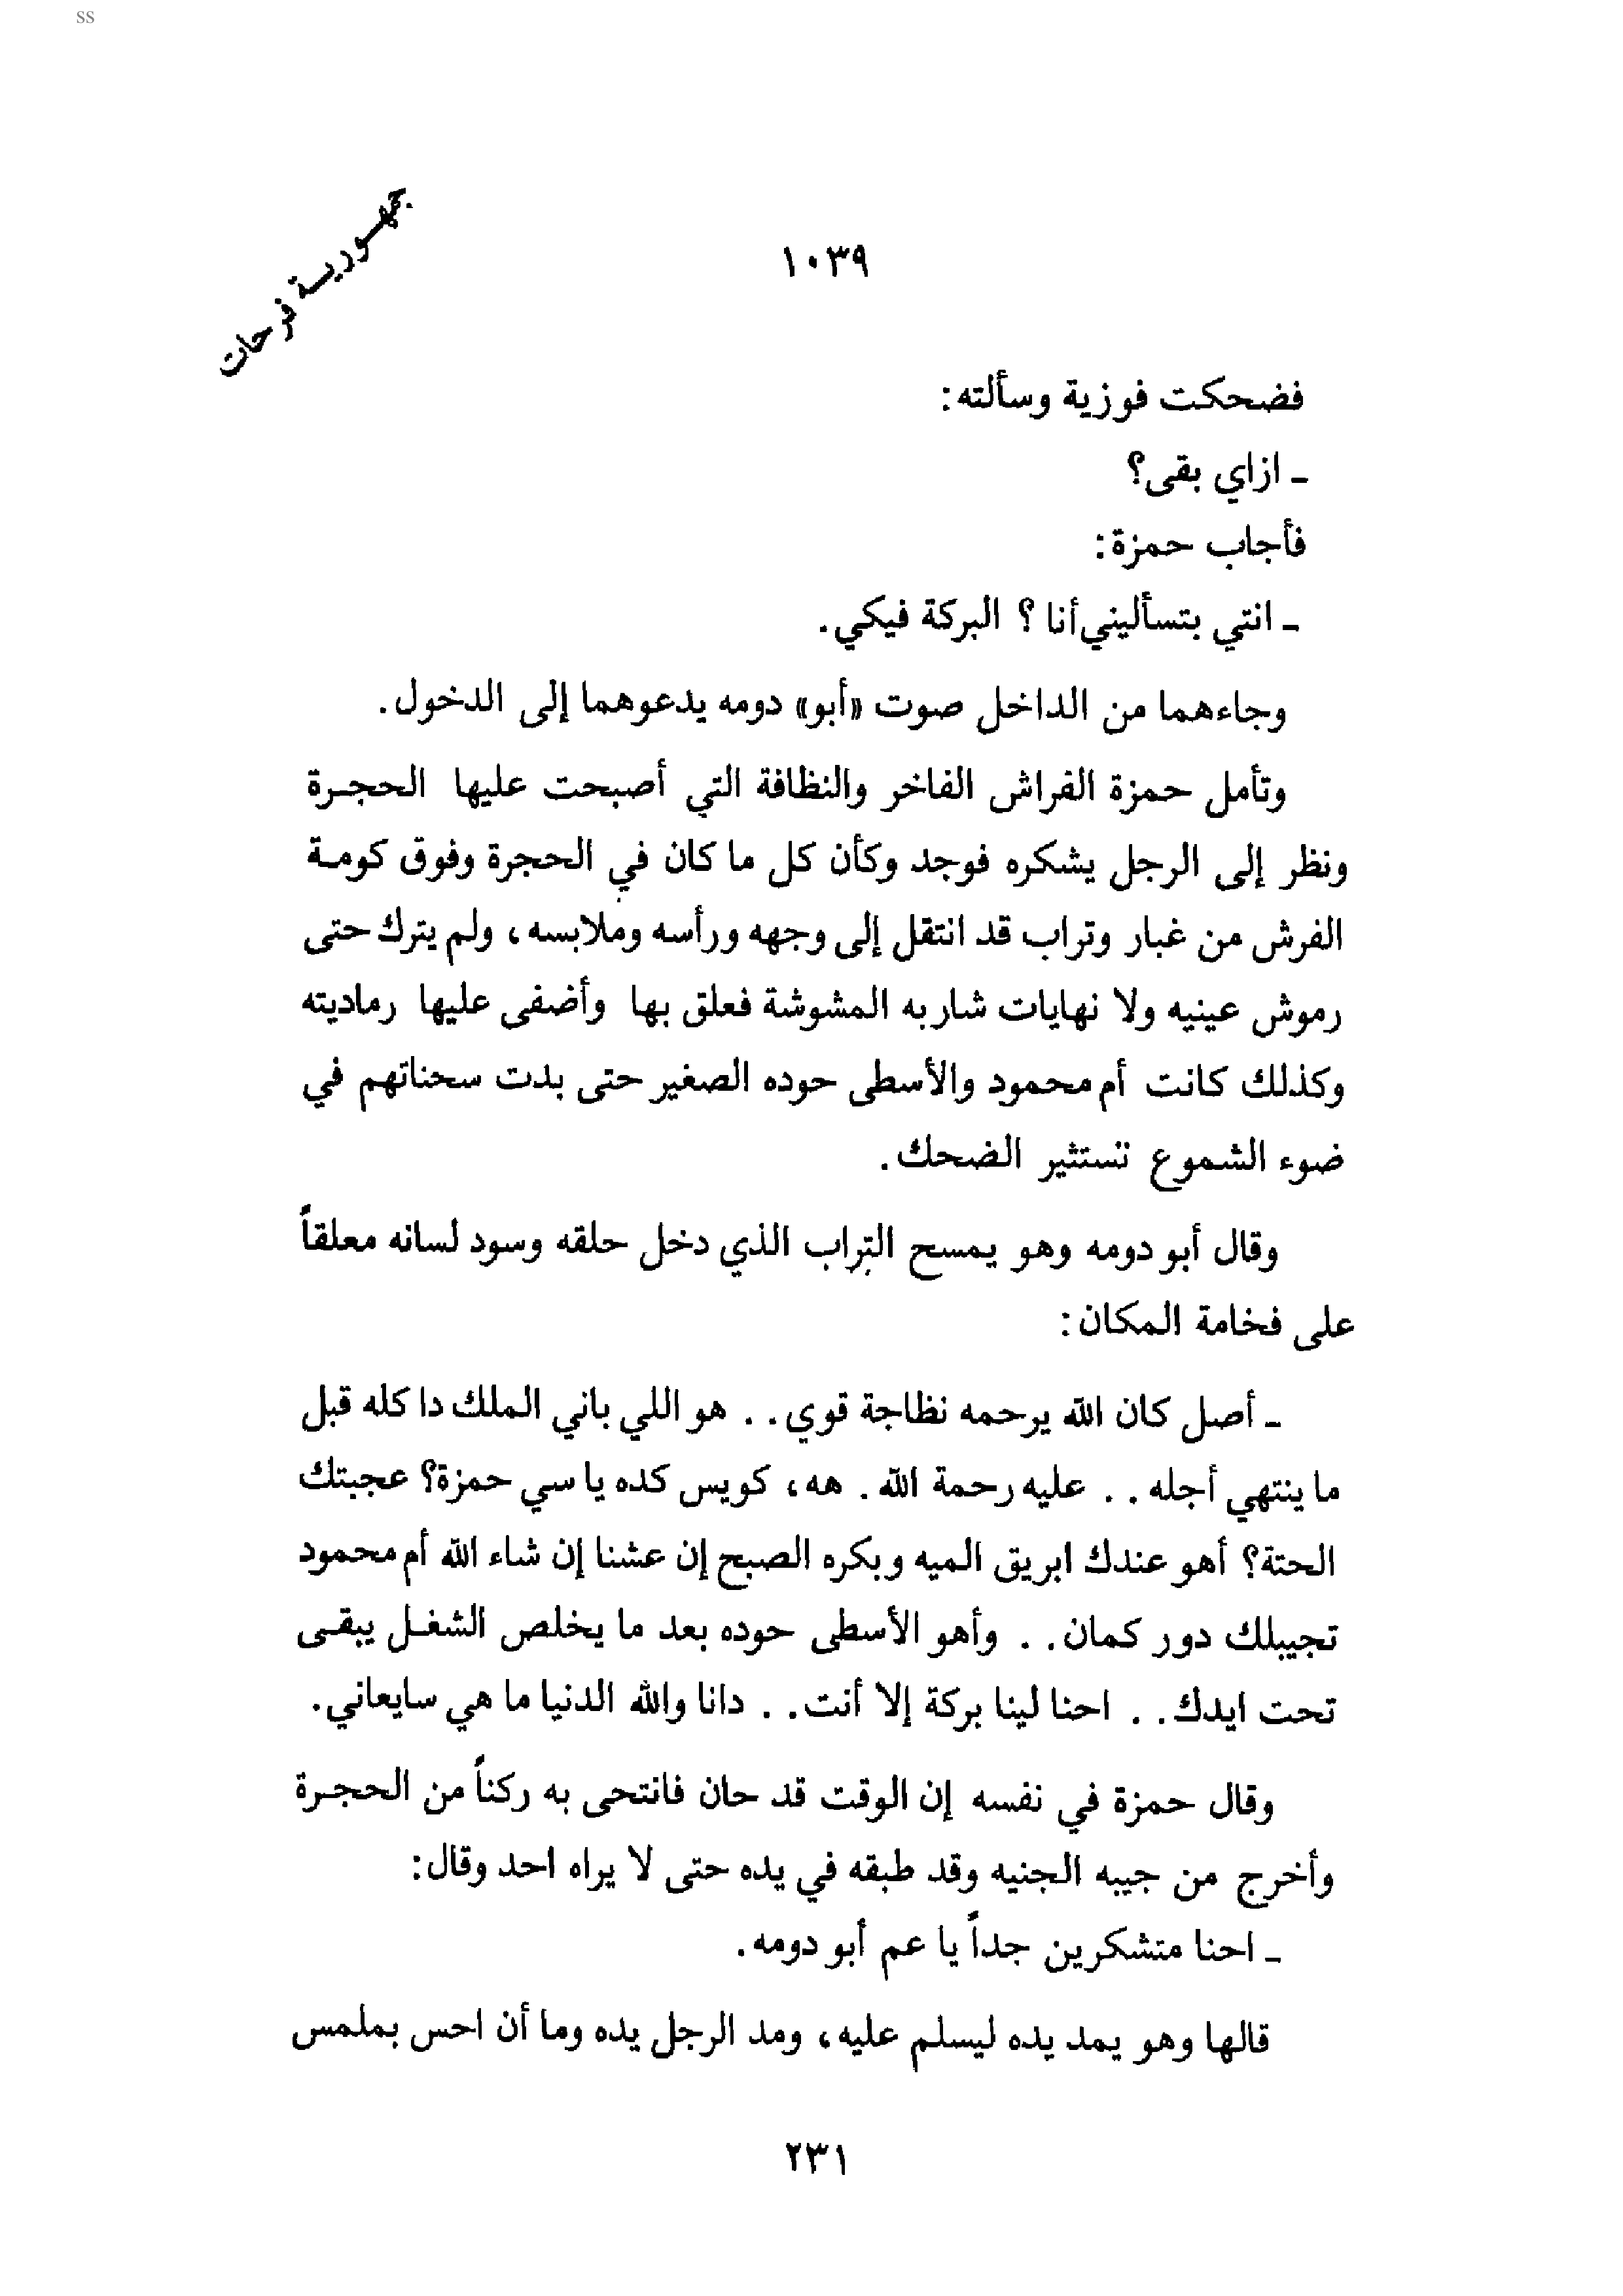 ss
جمهورية فرحات
١٠٣٩
فضحكت فوزية وسألته:
ـ ازاي بقى؟
فأجاب حمزة:
ـ انتي بتسأليني أنا ؟ البركة فيكي.
وجاءهما من الداخل صوت «أبو» دومه يدعوهما إلى الدخول.
وتأمل حمزة الفراش الفاخر والنظافة التي أصبحت عليها الحجرة
ونظر إلى الرجل يشكره فوجد وكأن كل ما كان في الحجرة وفوق كومة
الفرش من غبار وتراب قد انتقل إلى وجهه ورأسه وملابسه، ولم يترك حتى
رموش عينيه ولا نهايات شاربه المشوشة فعلق بها وأضفى عليها رماديته
وكذلك كانت أم محمود والأسطى حوده الصغير حتى بدت سحناتهم في
ضوء الشموع تستثير الضحك.
وقال أبو دومه وهو يمسح التراب الذي دخل حلقه وسود لسانه معلقاً
على فخامة المكان:
ـ أصل كان الله يرحمه نظاجة قوي. . هو اللي باني الملك دا كله قبل
ما ينتهي أجله . . عليه رحمة الله. هه، كويس كده يا سي حمزة؟ عجبتك
الحتة؟ أهو عندك ابريق الميه وبكره الصبح إن عشنا إن شاء الله أم محمود
تجيبلك دور كمان. . وأهو الأسطى حوده بعد ما يخلص الشغل يبقى
تحت ايدك. . احنا لينا بركة إلا أنت. . دانا والله الدنيا ما هي سايعاني.
وقال حمزة في نفسه إن الوقت قد حان فانتحى به ركناً من الحجرة
وأخرج من جيبه الجنيه وقد طبقه في يده حتى لا يراه احد وقال:
ـ احنا متشكرين جداً يا عم أبو دومه.
قالها وهو يمد يده ليسلم عليه، ومد الرجل يده وما أن احس بملمس
٢٣١